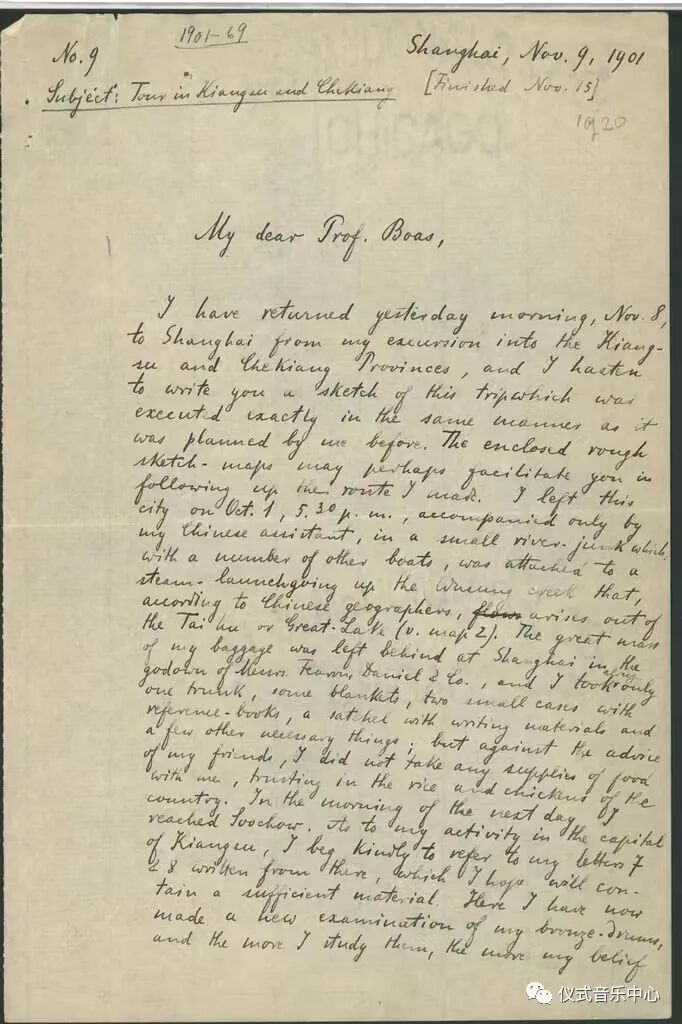 1901-69
No. 9
Shanghai, Nov. 9, 1901
Subject: Tour in Kiangsu and Chekiang
[Finished Nov. 15]
1920
My dear Prof. Boas,
I have returned yesterday morning, Nov. 8,
to Shanghai from my excursion into the Kiang-
su and Chekiang Provinces, and I hasten
to write you a sketch of this trip which was
executed exactly in the same manner as it
was planned by me before. The enclosed rough
sketch-maps may perhaps facilitate you in
following up the route I made. I left this
city on Oct. 1, 5.30 p. m., accompanied only by
my Chinese assistant, in a small river-junk which,
with a number of other boats, was attached to a
steam-launch going up the Wusung creek that,
according to Chinese geographers, flows arises out of
the Tai hu or Great-Lake (v. map 2). The great mass
of my baggage was left behind at Shanghai in the
godown of Messrs. Fearon, Daniel & Co., and I took along only
one trunk, some blankets, two small cases with
reference-books, a satchel with writing materials and
a few other necessary things; but against the advice
of my friends, I did not take any supplies of food
with me, trusting in the rice and chickens of the
country. In the morning of the next day I
reached Soochow. As to my activity in the capital
of Kiangsu, I beg kindly to refer to my letters 7
& 8 written from there, which I hope will con-
tain a sufficient material. Here I have now
made a new examination of my bronze-drums,
and the more I study them, the more my belief
仪式音乐中心